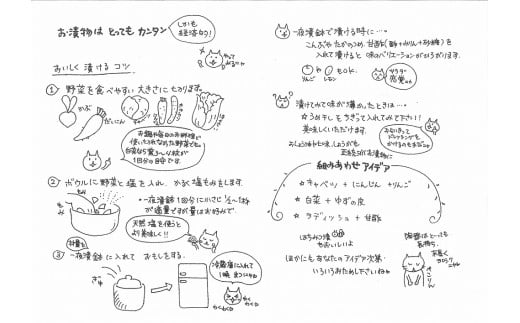 お漬物は とっても カンタン
しかも
経済的!
やって
みるにゃ
おいしく 漬ける コツ
① 野菜を食べやすい 大きさに切ります。
かぶ
だいこん
お鍋や毎日のお料理で
使いきれなかった野菜でも
白菜なら
1回分の目安です
② ボウルに野菜と塩を入れ、かるく塩もみをします。
もみ
もみ
・一夜漬鉢1回分に小さじ
が適量ですが量はお好みで
天然塩を使うと
より美味しい!!
材料を
③ 一夜漬鉢に入れて おもしをする。
ぎゅ
冷蔵庫に入れて
1晩 まつにゃ
わくわく
わくわく
一夜漬鉢で漬ける時に…。
こんぶや たかのつめ、甘酢(酢+みりん+砂糖)を
入れて漬けると 味のバリエーションが広がります。
りんご や レモン もO.K.
サラダ
感覚
漬けてみて味が薄かったときは…。
☆うめ干しをちぎって入れてみて下さい!
美味しくいただけます。
おしょうゆや七味、しょうがも
お漬物に
組みあわせ アイデア
☆ キャベツ + にんじん + りんご
☆ 白菜 + ゆずの皮
☆ ラディッシュ + 甘酢
はちみつ漬
もおいしいよ
ほかにもあなたのアイデア次第
いろいろためし下さいねゃ
陶器はとっても
長持ち。
末長く
ヨロシク
ニャん
ぺこりん